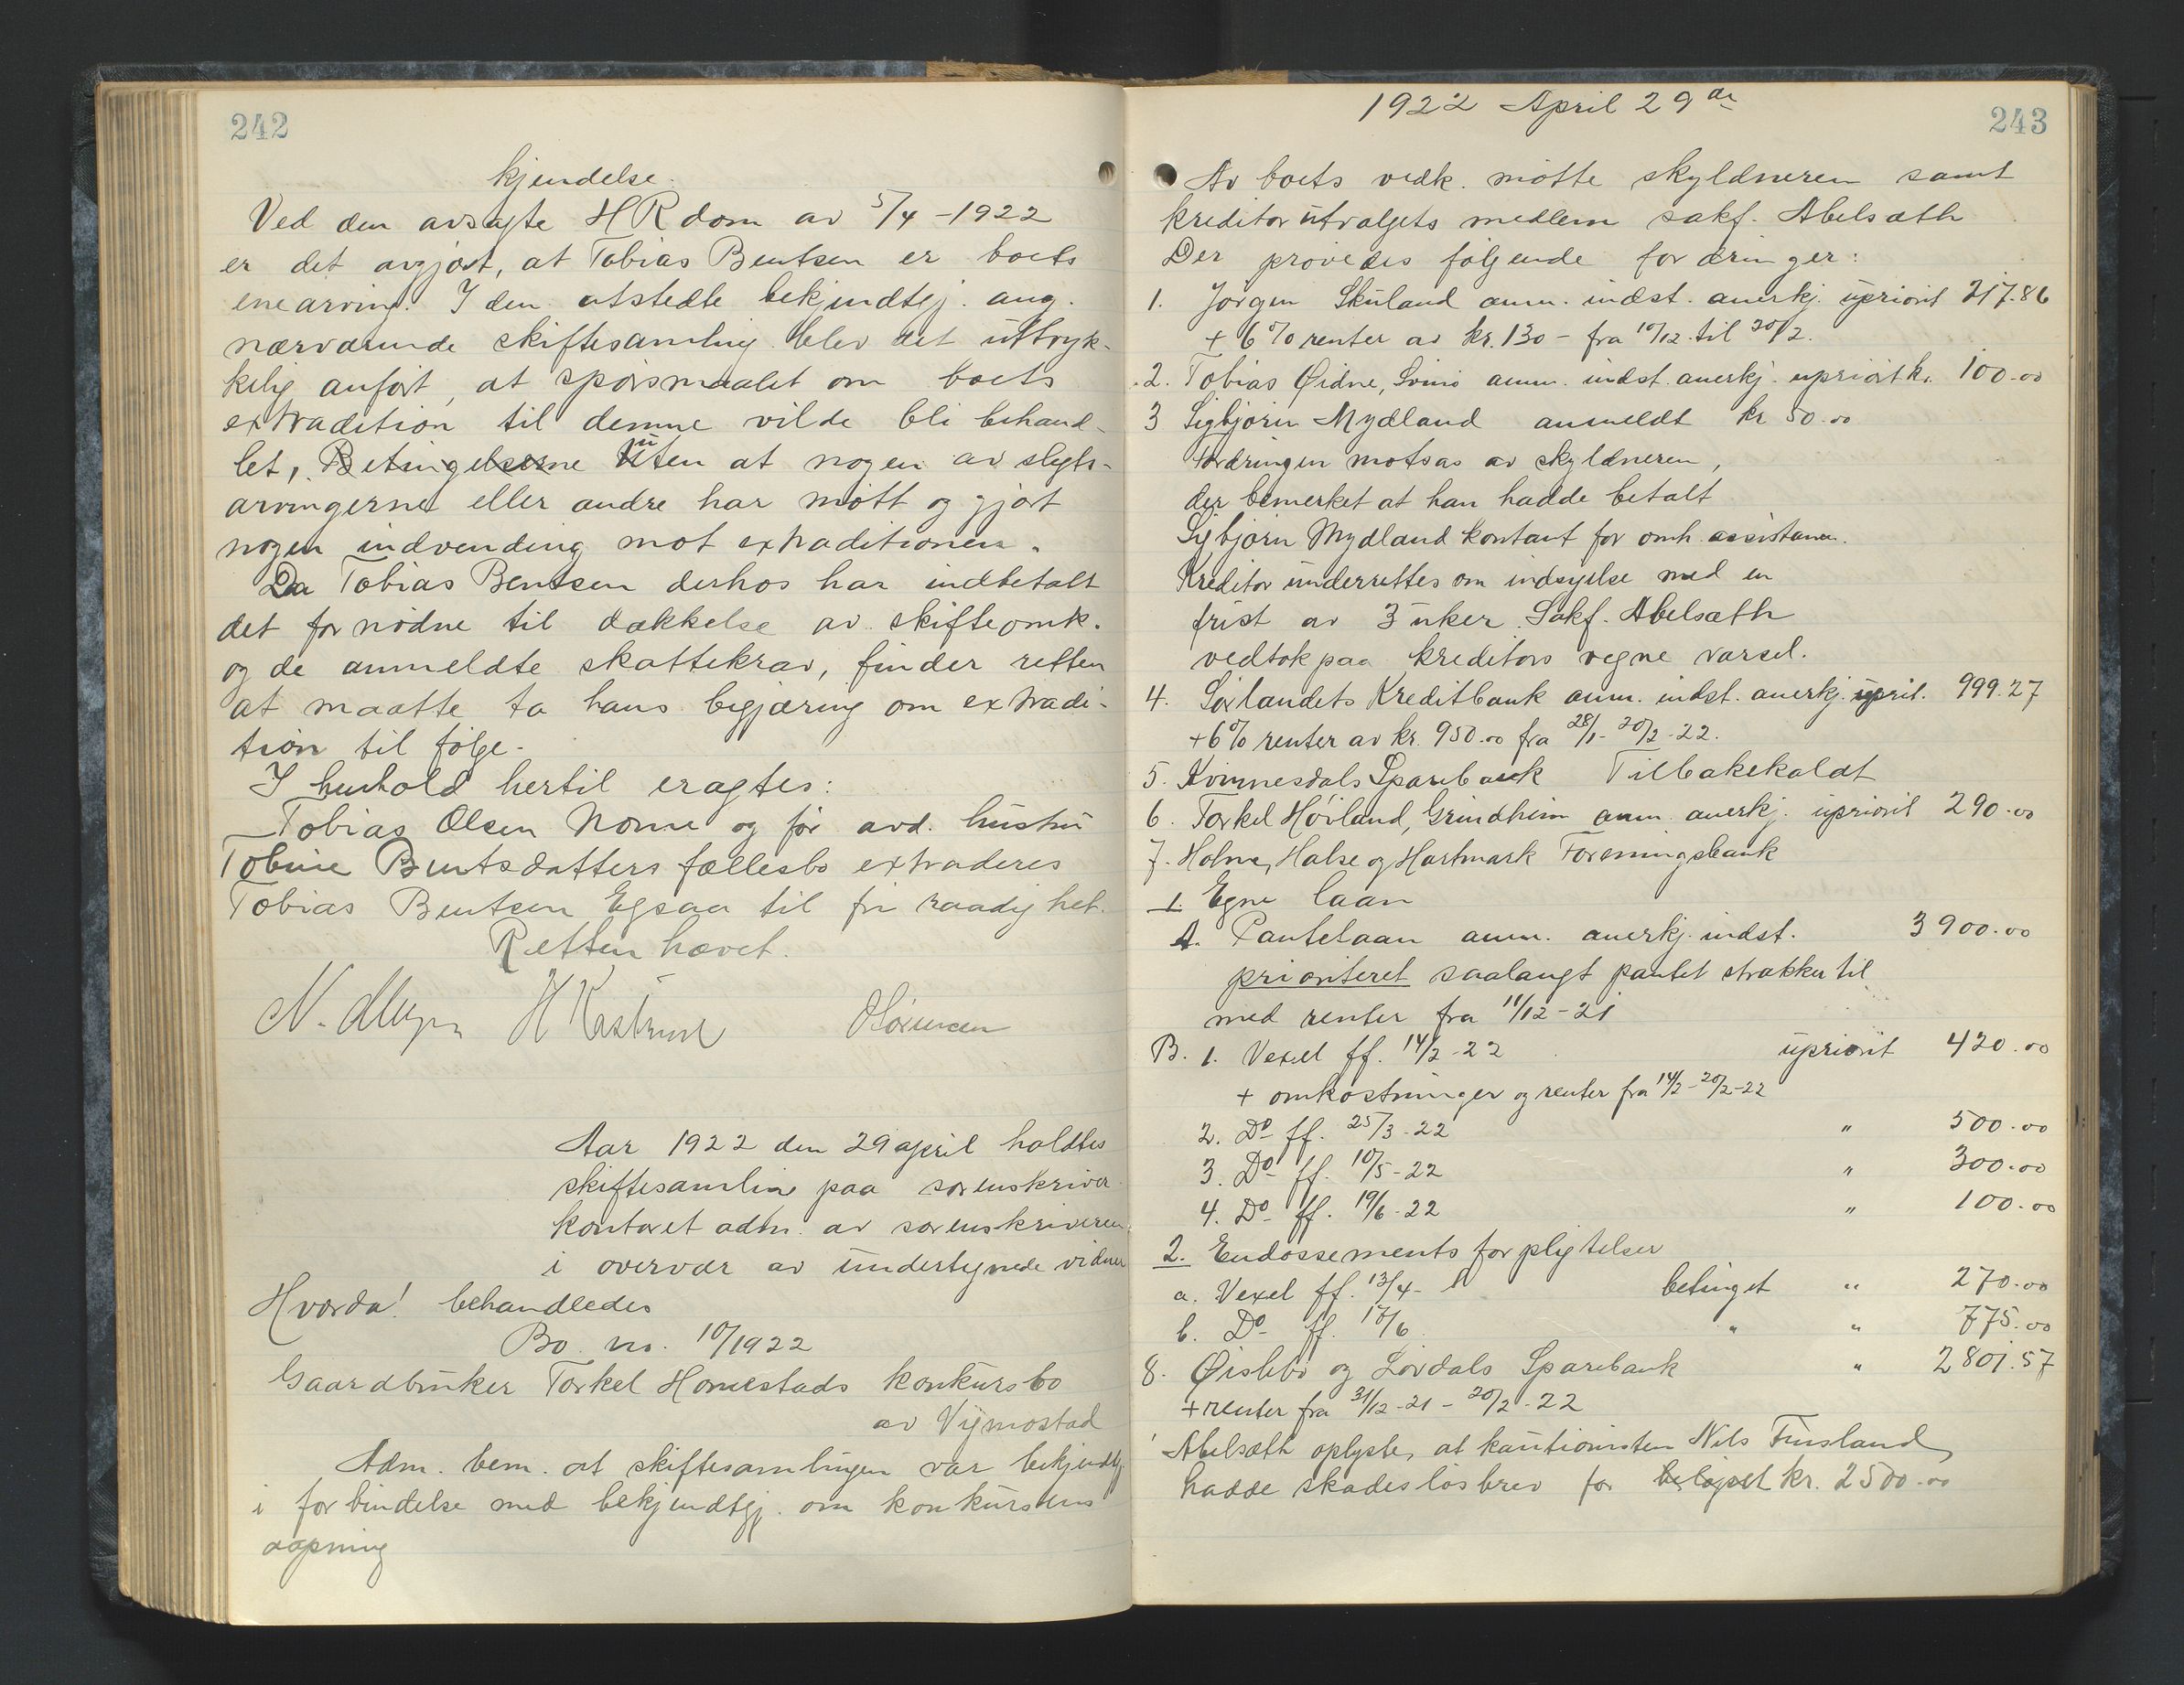 242
kjendelse.
Ved den avsagte HRdom av 5/4 -1922
er det avgjørt, at Tobias Bentsen er boets
enearving. I den utstedte bekjendtgj. ang.
nærværende skiftesamling blev det uttryk-
kelig anført, at spørsmaalet om boets
extradition til denne vilde bli behand-
let, Betingelserne uten at nogen av slegts-
arvingerne eller andre har møtt og gjort
nogen indvending mot extraditionen.
Da Tobias Bentsen derhos har indbetalt
det fornødne til dækkelse av skifteomk.
og de anmeldte skattekrav, finder retten
at maatte ta hans begjæring om extradi-
tion til følge.
I henhold hertil eragtes:
Tobias Olsen Nome og før avd. hustru
Tobine Bentsdatters fællesbo extraderes
Tobias Bentsen Egsaa til fri raadighet.
Retten hævet.
Aar 1922 den 29 april holdtes
skiftesamling paa sorenskriver
kontoret adm. av sorenskriveren
i overvær av undertegnede vidner
Hvorda! behandledes
Bo. no. 10/1922
Gaardbruker Torkel Homestads konkursbo
av Vigmostad
Adm. bem. at skiftesamlingen var bekjendtgj
i forbindelse med bekjendtgj. om konkursens
aapning
1922 April 29de
243
Av boets vedk. møtte skyldneren samt
kreditorutvalgets medlem sakf. Abelsæth
Der prøvedes følgende fordringer:
1. Jørgen Skuland anm. indst. anerkj. upriorit 217.86
+ 6% renter av kr. 130 - fra 10/12 til 20/2.
2. Tobias Øidne, anm. indst. anerkj. upriorit kr. 100.00
3 Sigbjørn Mydland anmeldt kr 50.00
Fordringen motsas av skyldneren,
der bemerket at han hadde betalt
Sigbjørn Mydland kontant for omh. assistance.
Kreditor underrettes om indsigelse med en
frist av 3 uker. Sakf. Abelsæth
vedtok paa kreditors vegne varsel.
4. Sørlandets Kreditbank anm. indst. anerkj. uprit. 999.27
+6% renter av kr. 950.00 fra 28/1 - 20/2 - 22.
5. Kvinnesdals Sparebank Tilbakekaldt
6. Torkel Høiland, Grindheim anm. anerkj. upriorit 290.00
7. Holme, Halse og Hartmark Foreningsbank
1. Egne laan
A. Pantelaan anm. anerkj. indst. 3900.00
prioriteret saalangt pantet strækker til
med renter fra 11/12 - 21
B. 1. Vexel ff. 14/2 - 22 upriorit 420.00
+ omkostninger og renter fra 14/2 - 20/2 - 22
2. Do ff. 25/3 - 22 " 500.00
3. Do ff. 10/5 - 22 " 300.00
4. Do ff. 19/6 - 22 " 100.00
2. Endossements forpligtelser
a. Vexel ff. 13/4 - betinget " 270.00
b. Do ff. " " 775.00
8. Øislebø og Løvdals Sparebank " 2801.57
+ renter fra 31/12 - 21 - 20/2 - 22
Abelsæth oplyste, at kautionisten Nils Finsland
hadde skadesløsbrev for beløpet kr. 2500.00